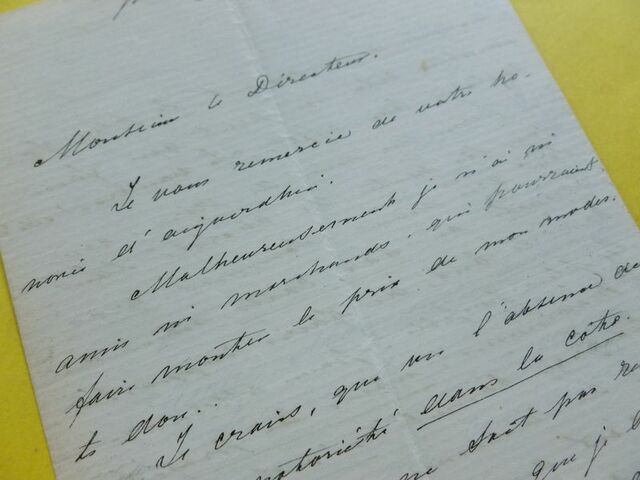 Monsieur le Directeur.
Je vous remercie de votre ho-
norée d'aujourdhui.
Malheureusement je n'ai ni
amis ni marchands, qui pourraient
faire monter le prix de mon modes-
te don..
Je crains, que vu l'absence de
notoriété dans la côte.
ne soit pas
que je